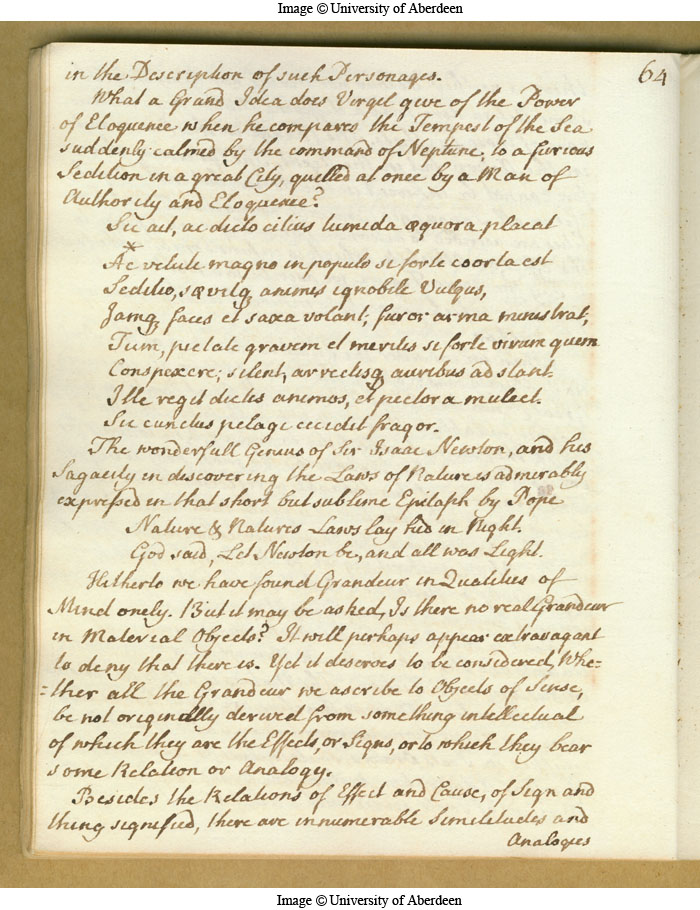 Image © University of Aberdeen
64
in the Description of such Personages.
What a Grand Idea does Virgil give of the Power
of Eloquence when he compares the Tempest of the Sea
suddenly calmed by the command of Neptune, to a furious
Sedition in a great City, quelled at once by a Man of
Authority and Eloquence?
Sic ait, ac dicto citius tumida æquora placat
*
Ac veluti magno in populo si forte coorta est
Seditio, sævitq animis ignobile Vulgus,
Jamq faces et saxa volant; furor arma ministrat;
Tum, pietate gravem et meritis si forte virum quem
Conspexere; silent, arrectisq auribus adstant.
Ille regit dictis animos, et pectora mulcet.
Sic cunctus pelagi cecidit fragor.
The wonderfull Genius of Sir Isaac Newton, and his
Sagacity in discovering the Laws of Nature is admirably
expressed in that short but sublime Epitaph by Pope
Nature & Natures Laws lay hid in Night.
God said, Let Newton be, and all was Light.
Hitherto we have found Grandeur in Qualities of
Mind onely. But it may be asked, Is there no real Grandeur
in Material Objects? It will perhaps appear extravagant
to deny that there is. Yet it deserves to be considered, Whe=
=ther all the Grandeur we ascribe to Objects of Sense,
be not originally derived from something intellectual
of which they are the Effects, or Signs, or to which they bear
some Relation or Analogy.
Besides the Relations of Effect and Cause, of Sign and
thing signified, there are innumerable Similitudes and
Analogies
Image © University of Aberdeen